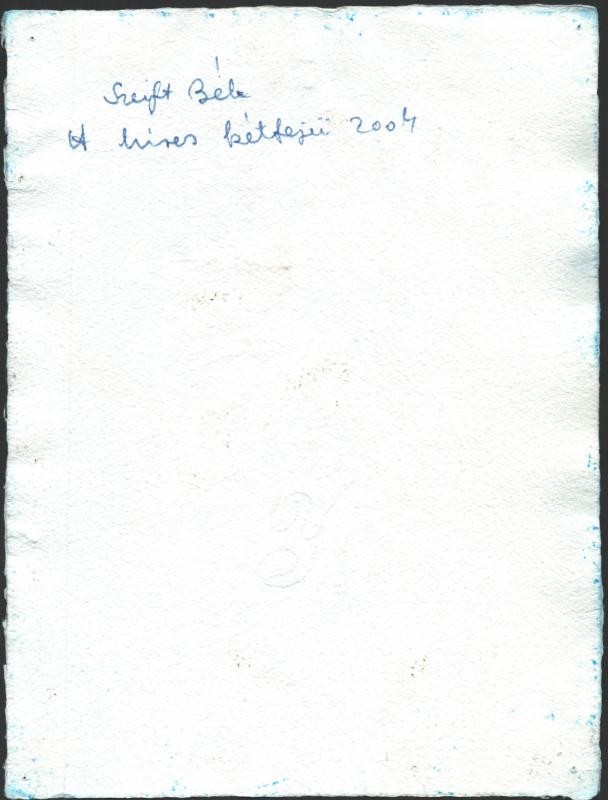 Szeift Béla
A híres kétfejű 2004